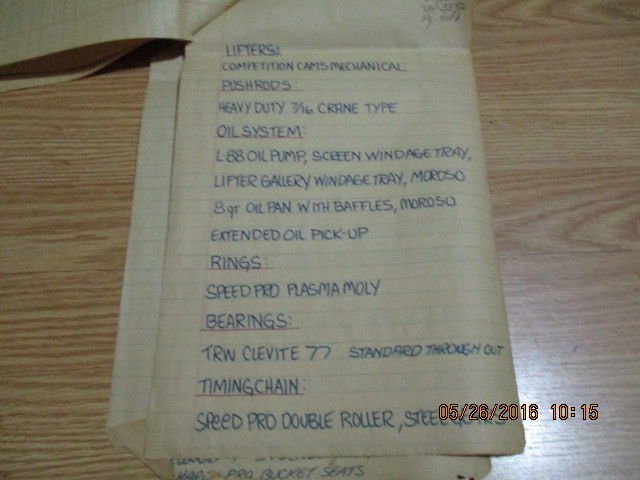 LIFTERS:
COMPETITION CAMS MECHANICAL
PUSHRODS:
HEAVY DUTY 7/16 CRANE TYPE
OIL SYSTEM:
L-88 OIL PUMP, SCREEN WINDAGE TRAY,
LIFTER GALLERY WINDAGE TRAY, MOROSO
8 qt OIL PAN WITH BAFFLES, MOROSO
EXTENDED OIL PICK-UP
RINGS:
SPEED PRO PLASMA MOLY
BEARINGS:
TRW CLEVITE 77 STANDARD THROUGH OUT
TIMING CHAIN:
SPEED PRO DOUBLE ROLLER, STEEL
05/26/2016 10:15
PRO BUCKET SEATS